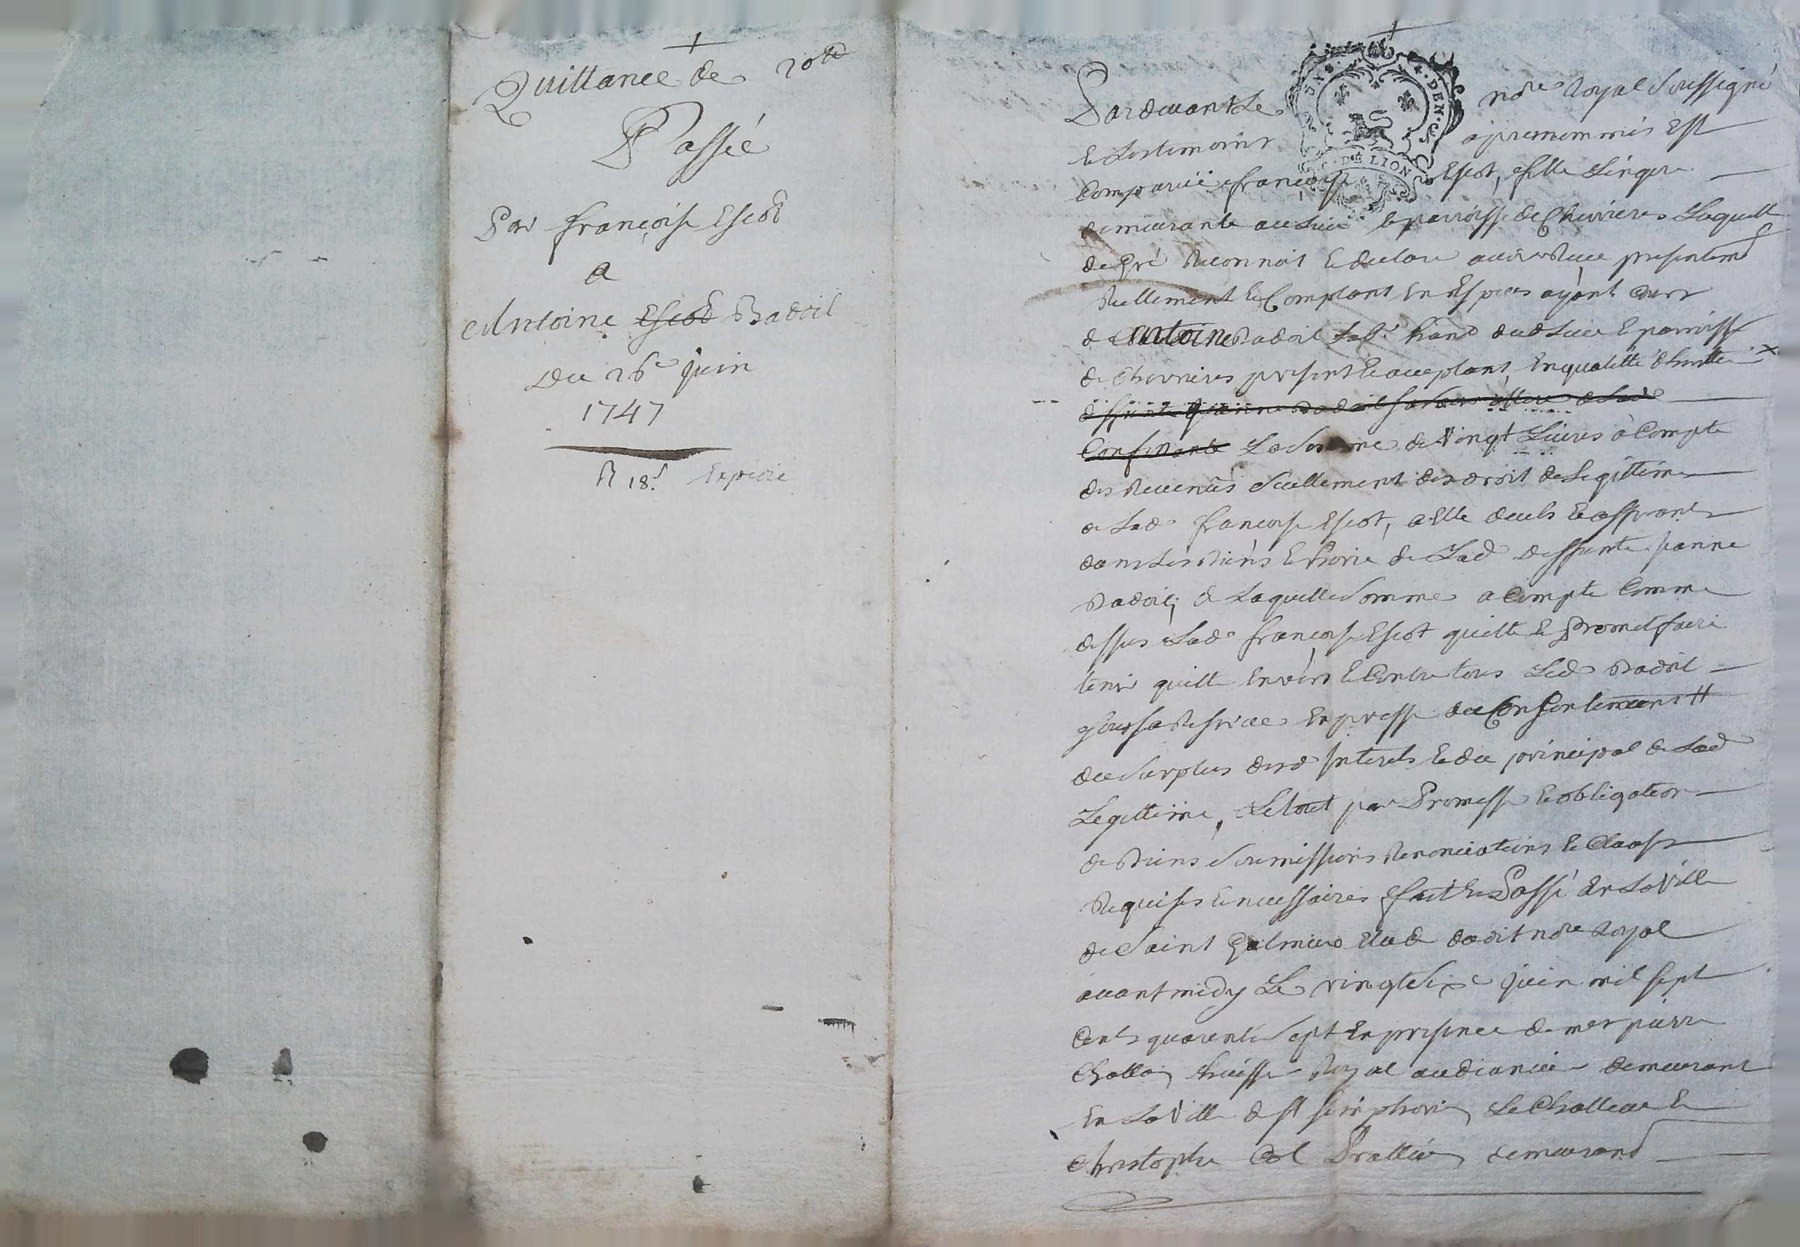 Quittance de 20tt
Passée
Par françoise Escot
a
Antoine Escot Badoil
Du 26e juin
1747
R 18s. Expedié
Pardevant Le nore Royal Soussigné
et Les temoins apres nommés Est
Comparüe françoise Escot, fille Lingere
demeurante au Lieu et parroisse de Chevrieres Laquelle
de gré Reconnoit et declare avoir Reçu presentemt
Reellement et Comptant En Especes ayant Cours
de Antoine Badoil dud Lieu et parroisse
de Chevrieres present et acceptant, En qualitté d'heritier x
La Somme de Vingt Livres à Compte
des Revenus Seullement des droit de Legittime
de Lad françoise Escot, a Elle deubs et afferants
dans Les Biens et hoirie de Lad deffunte jeanne
Badoil, de Laquelle Somme a Compte Comme
dessus Lad françoise Escot quitte et Promet faire
tenir quitte Envers et Contre tous Led Badoil
Expresse du Consentement #
du Surplus desd Interets et du principal de Lad
Legittime, Le tout par Promesse et obligation
de Biens Soumissions Renonciations et Clauses
Requises et necessaires fait et Passé En La Ville
de Saint Galmier Etude dudit nore Royal
avant midy Le vingt Six juin mil Sept
Cents quarente Sept En presence de mer pierre
huissier Royal audiancier demeurant
En La Ville de St Simphorien Le Chatteau et
Christophe demeurand
DE LION